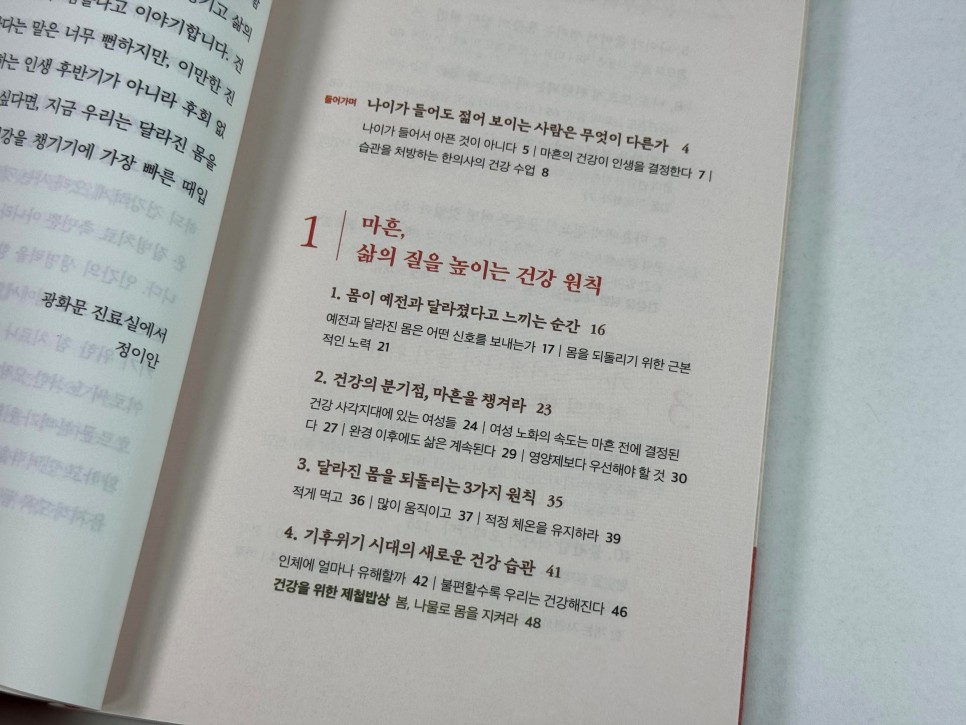 기고 삶의
다고 이야기합니다. 건
다는 말은 너무 뻔하지만, 이만한 진
하는 인생 후반기가 아니라 후회 없
싶다면, 지금 우리는 달라진 몸을
강을 챙기기에 가장 빠른 때입
광화문 진료실에서
정이안
들어가며 나이가 들어도 젊어 보이는 사람은 무엇이 다른가 4
나이가 들어서 아픈 것이 아니다 5 | 마흔의 건강이 인생을 결정한다 7 |
습관을 처방하는 한의사의 건강 수업 8
1 마흔,
삶의 질을 높이는 건강 원칙
1. 몸이 예전과 달라졌다고 느끼는 순간 16
예전과 달라진 몸은 어떤 신호를 보내는가 17 | 몸을 되돌리기 위한 근본
적인 노력 21
2. 건강의 분기점, 마흔을 챙겨라 23
건강 사각지대에 있는 여성들 24 | 여성 노화의 속도는 마흔 전에 결정된
다 27 | 완경 이후에도 삶은 계속된다 29 | 영양제보다 우선해야 할 것 30
3. 달라진 몸을 되돌리는 3가지 원칙 35
적게 먹고 36 | 많이 움직이고 37 | 적정 체온을 유지하라 39
4. 기후위기 시대의 새로운 건강 습관 41
인체에 얼마나 유해할까 42 | 불편할수록 우리는 건강해진다 46
건강을 위한 제철밥상 봄, 나물로 몸을 지켜라 48